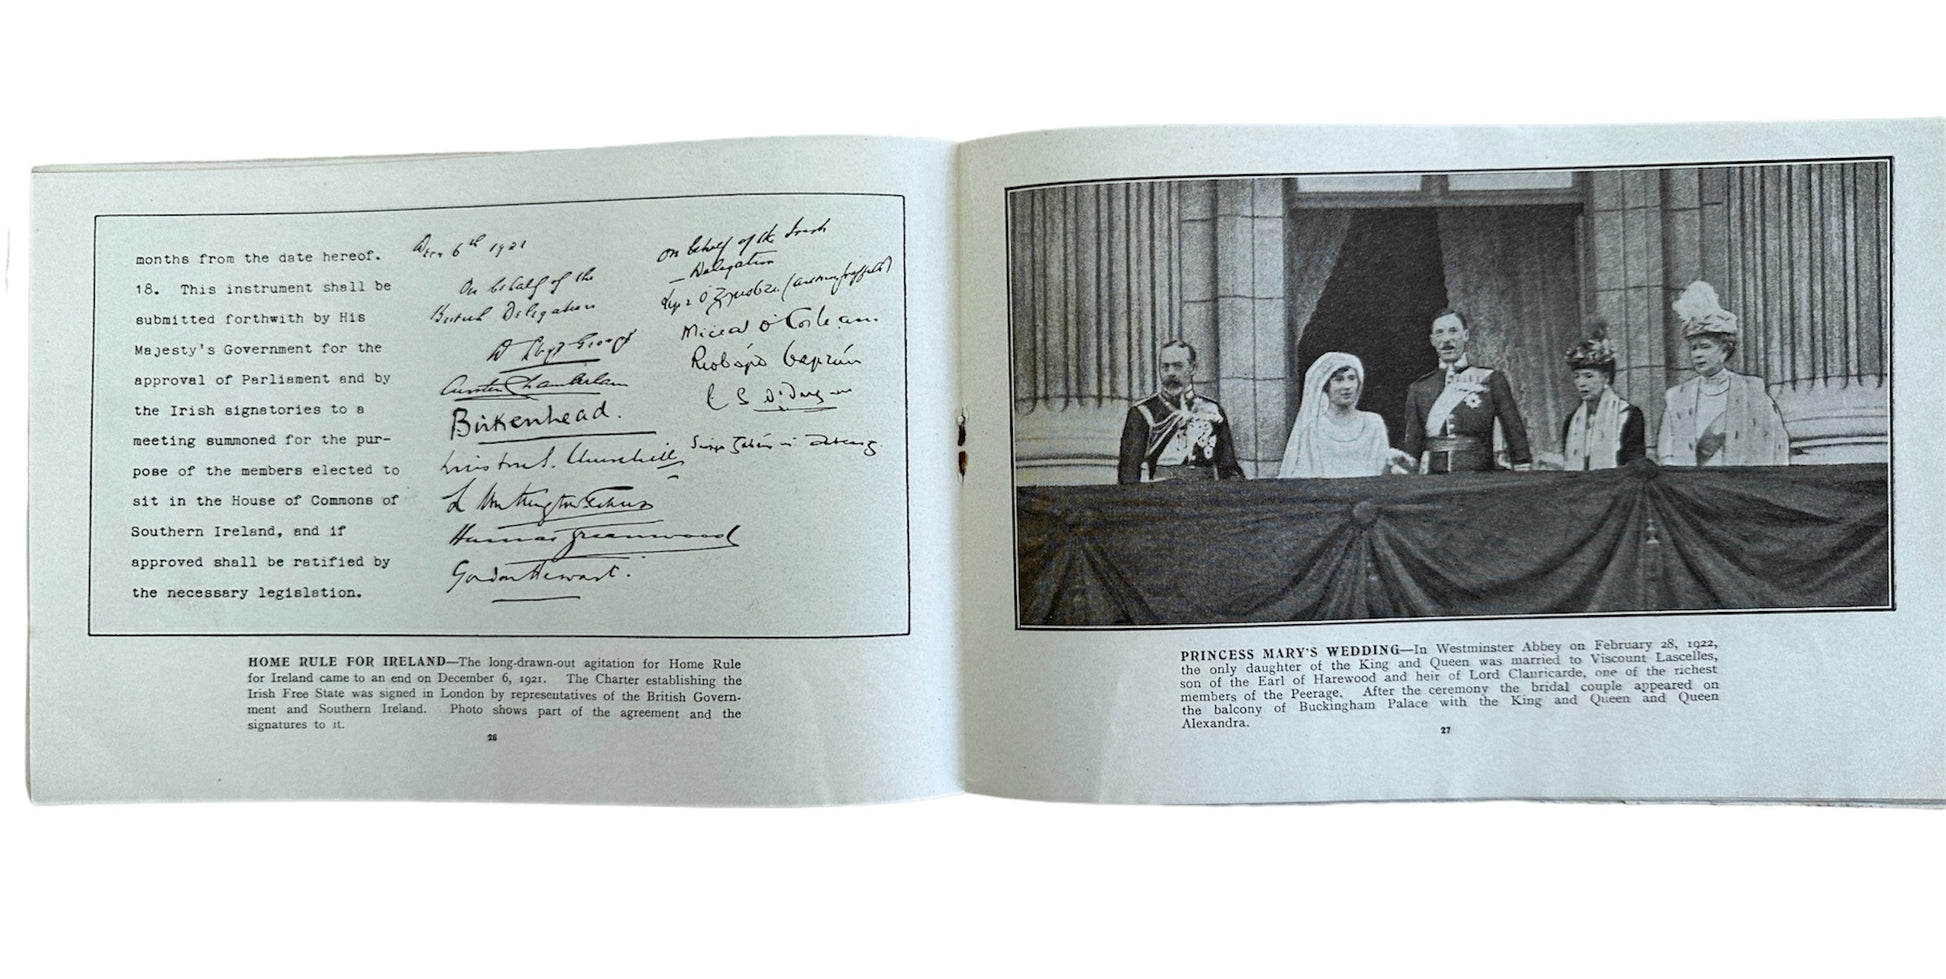 months from the date hereof.
18. This instrument shall be
submitted forthwith by His
Majesty's Government for the
approval of Parliament and by
the Irish signatories to a
meeting summoned for the pur-
pose of the members elected to
sit in the House of Commons of
Southern Ireland, and if
approved shall be ratified by
the necessary legislation.
Decr 6th 1921
On behalf of the
British Delegation
D Lloyd George
Austen Chamberlain
Birkenhead.
Winston S. Churchill
L Worthington Evans
Hamar Greenwood
Gordon Hewart.
On behalf of the Irish
Delegation
Miceál
HOME RULE FOR IRELAND—The long-drawn-out agitation for Home Rule
for Ireland came to an end on December 6, 1921. The Charter establishing the
Irish Free State was signed in London by representatives of the British Govern-
ment and Southern Ireland. Photo shows part of the agreement and the
signatures to it.
26
PRINCESS MARY'S WEDDING—In Westminster Abbey on February 28, 1922,
the only daughter of the King and Queen was married to Viscount Lascelles,
son of the Earl of Harewood and heir of Lord Clanricarde, one of the richest
members of the Peerage. After the ceremony the bridal couple appeared on
the balcony of Buckingham Palace with the King and Queen and Queen
Alexandra.
27